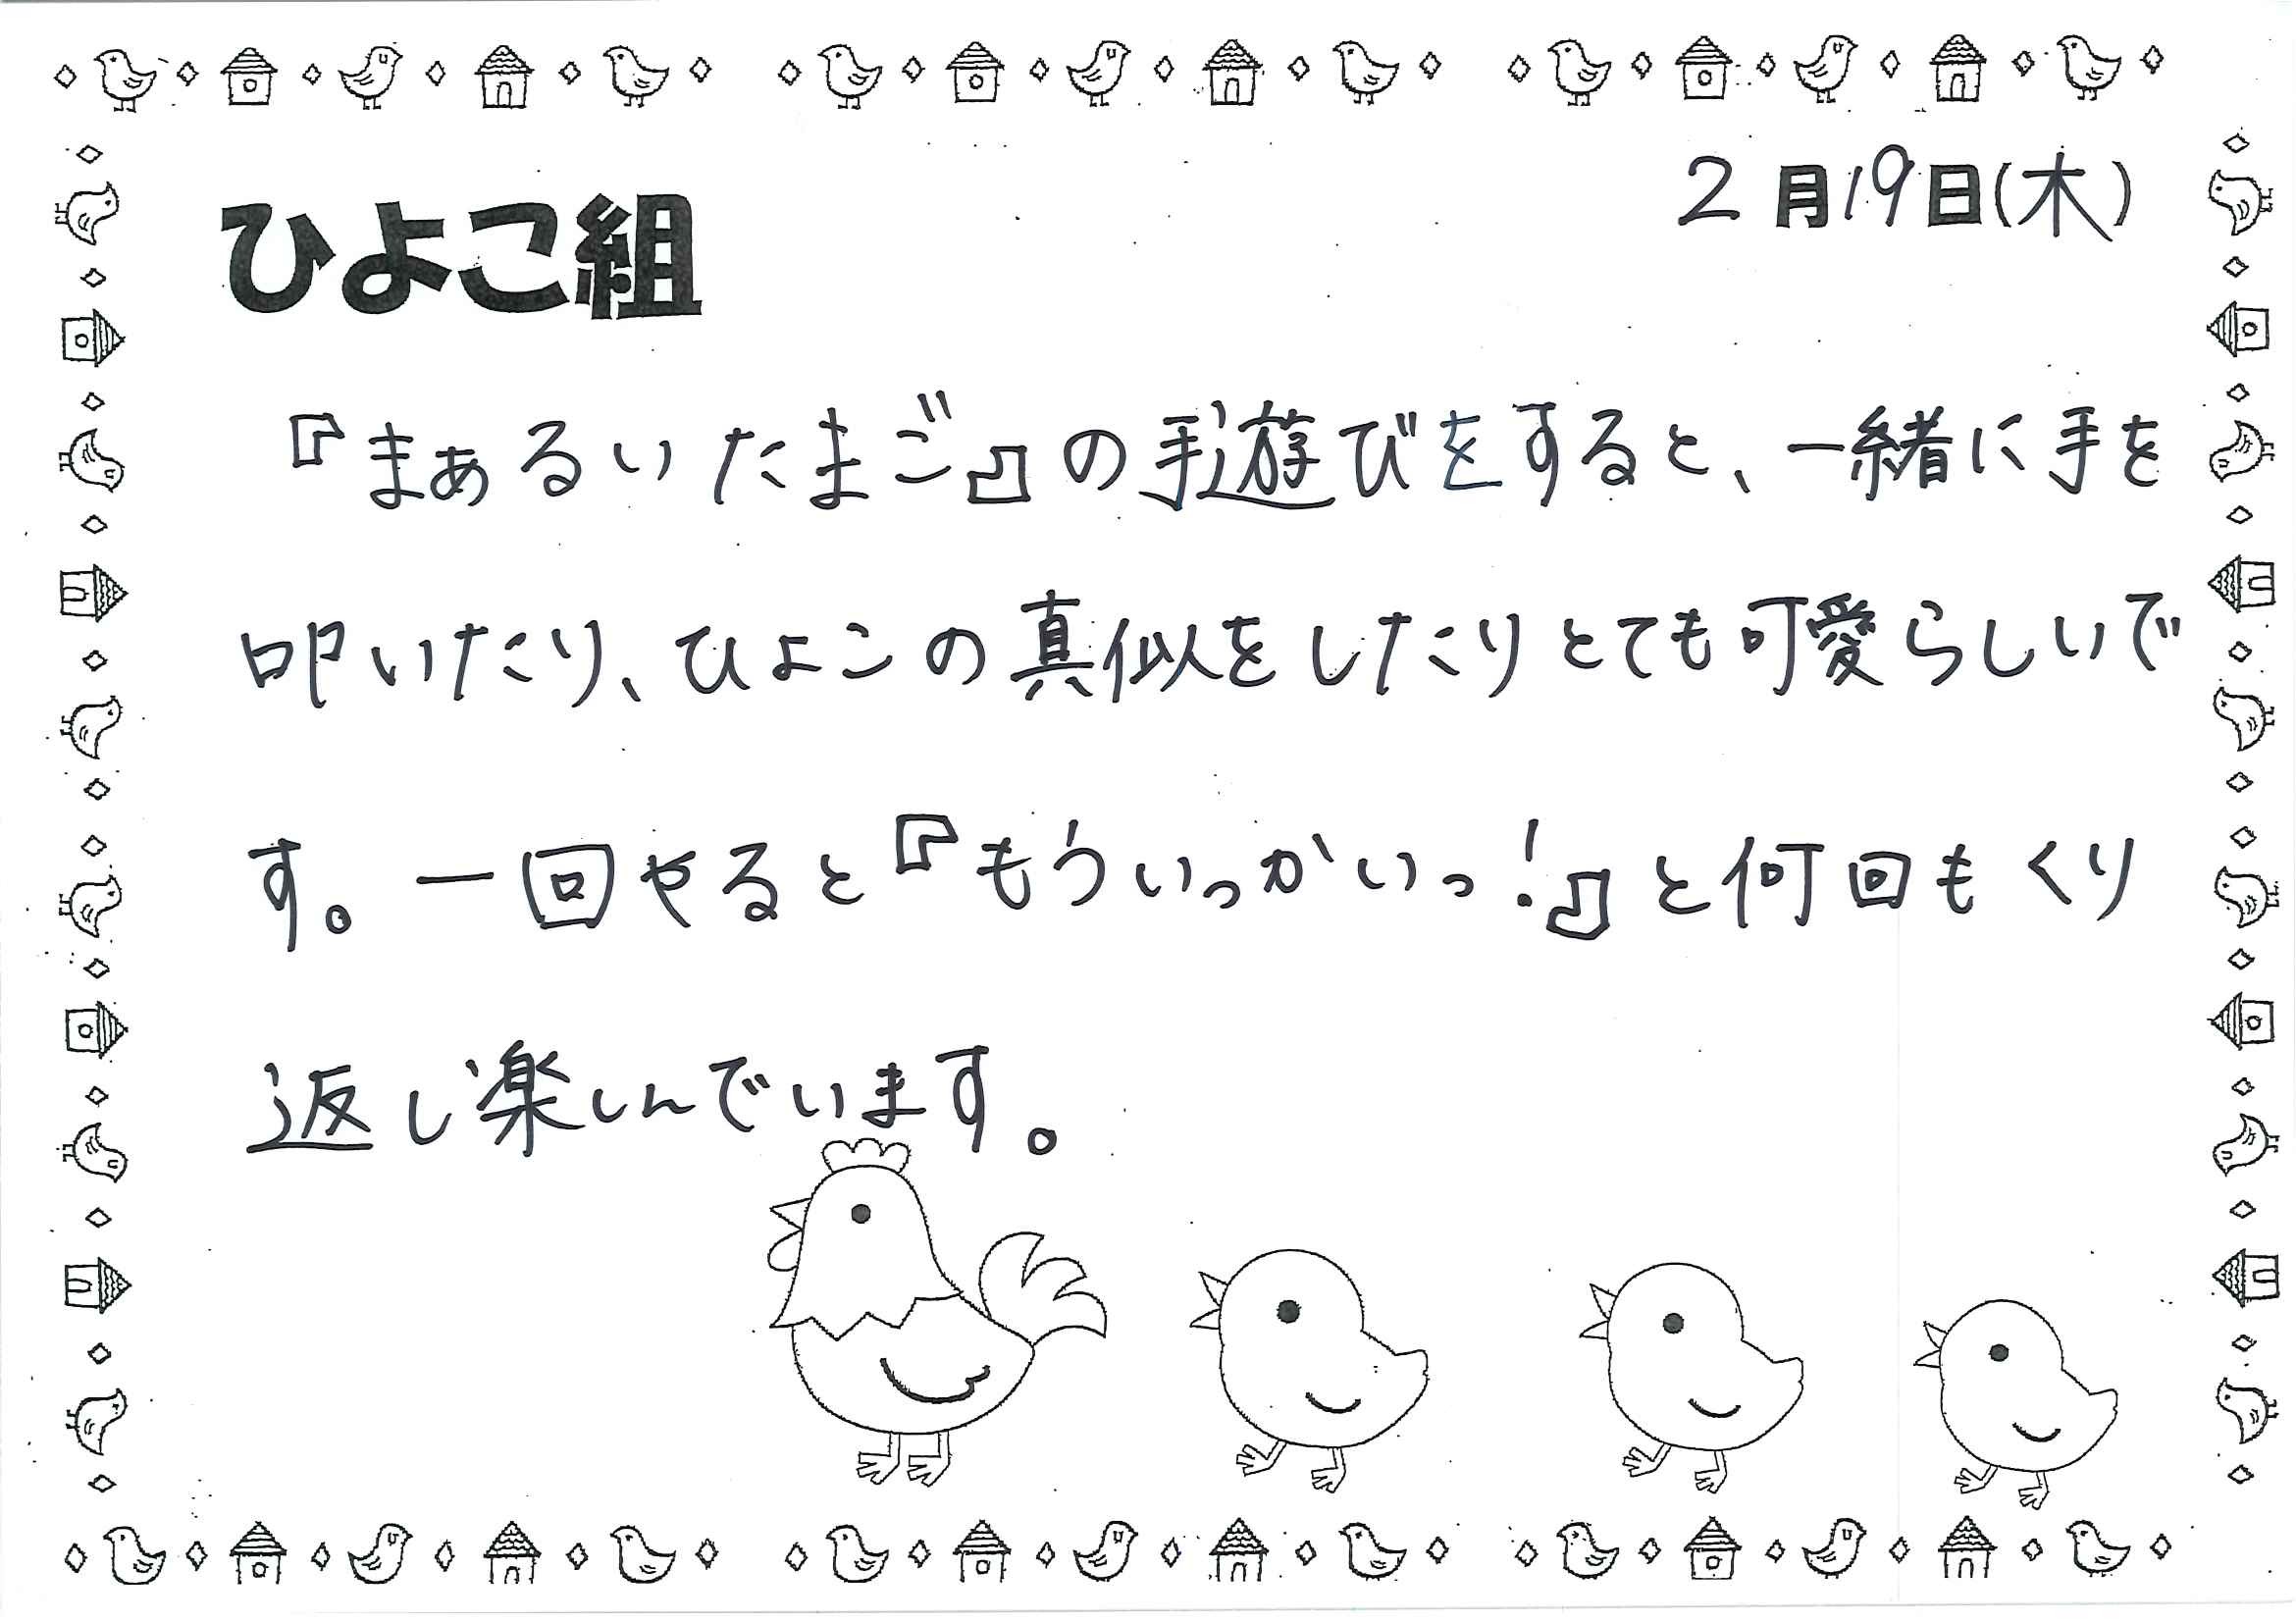 2月19日(木)
ひよこ組
『まぁるいたまご』の手遊びをすると、一緒に手を
叩いたり、ひよこの真似をしたりとても可愛らしいで
す。一回やると『もういっかいっ!』と何回もくり
返し楽しんでいます。